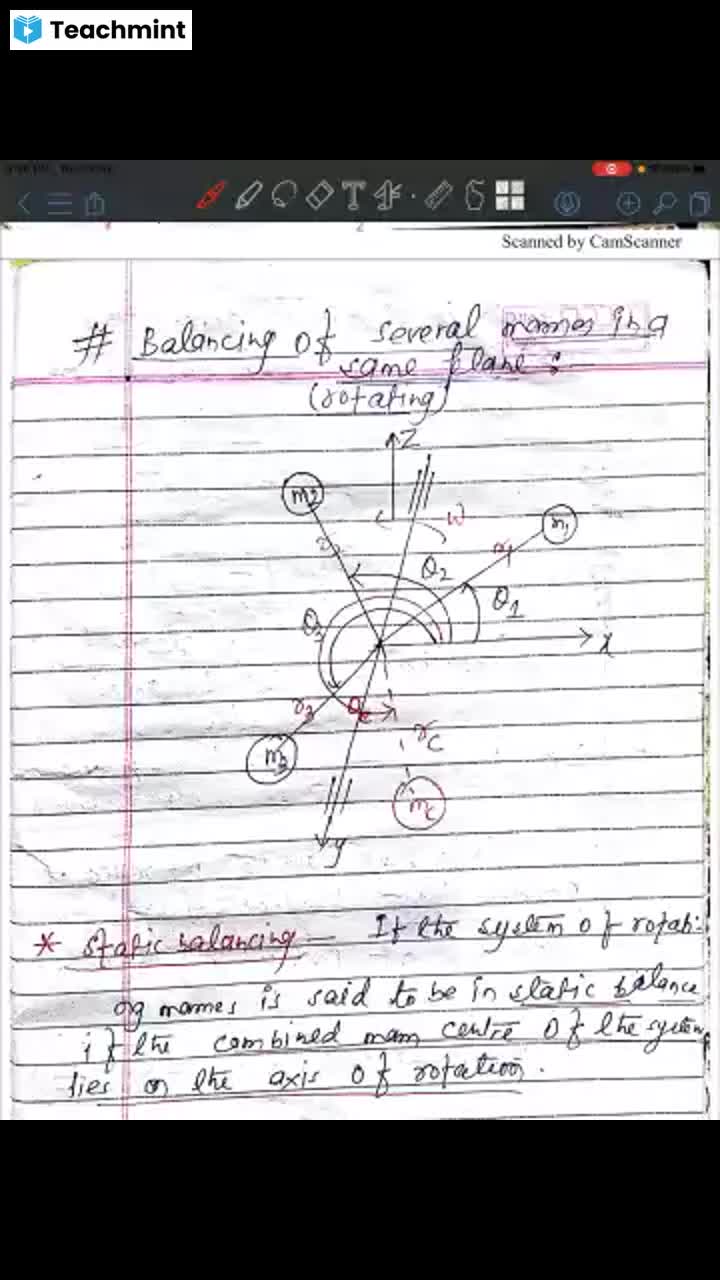 Teachmint
Scanned by CamScanner
# Balancing of several masses in a
same plane :-
(rotating)
Z
m2
m1
ω
r1
θ2
θ1
θ3
x
r3
θc
rc
m3
mc
y
* Static balancing - If the system of rotati-
ng masses is said to be in static balance
if the combined mass centre of the system
lies on the axis of rotation.